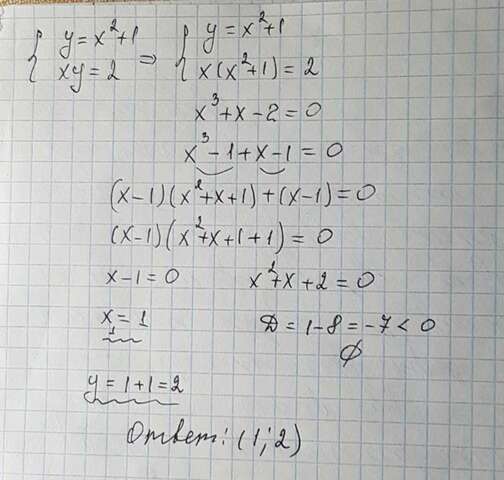 { y = x²+1 ⇒ { y = x²+1
xy = 2 x(x²+1) = 2
x³+x-2=0
x³-1+x-1=0
(x-1)(x²+x+1)+(x-1)=0
(x-1)(x²+x+1+1)=0
x-1=0 x²+x+2=0
x=1 D=1-8=-7<0
1 ∅
y=1+1=2
Ответ: (1;2)